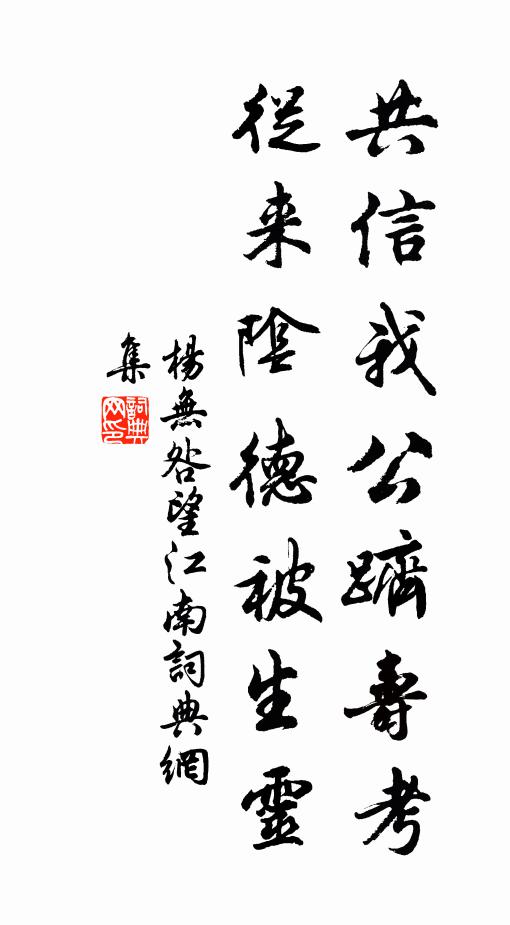 共信我公躋壽考
従来陰德被生靈
楊無咎望江南詞典網
集
詞典网印